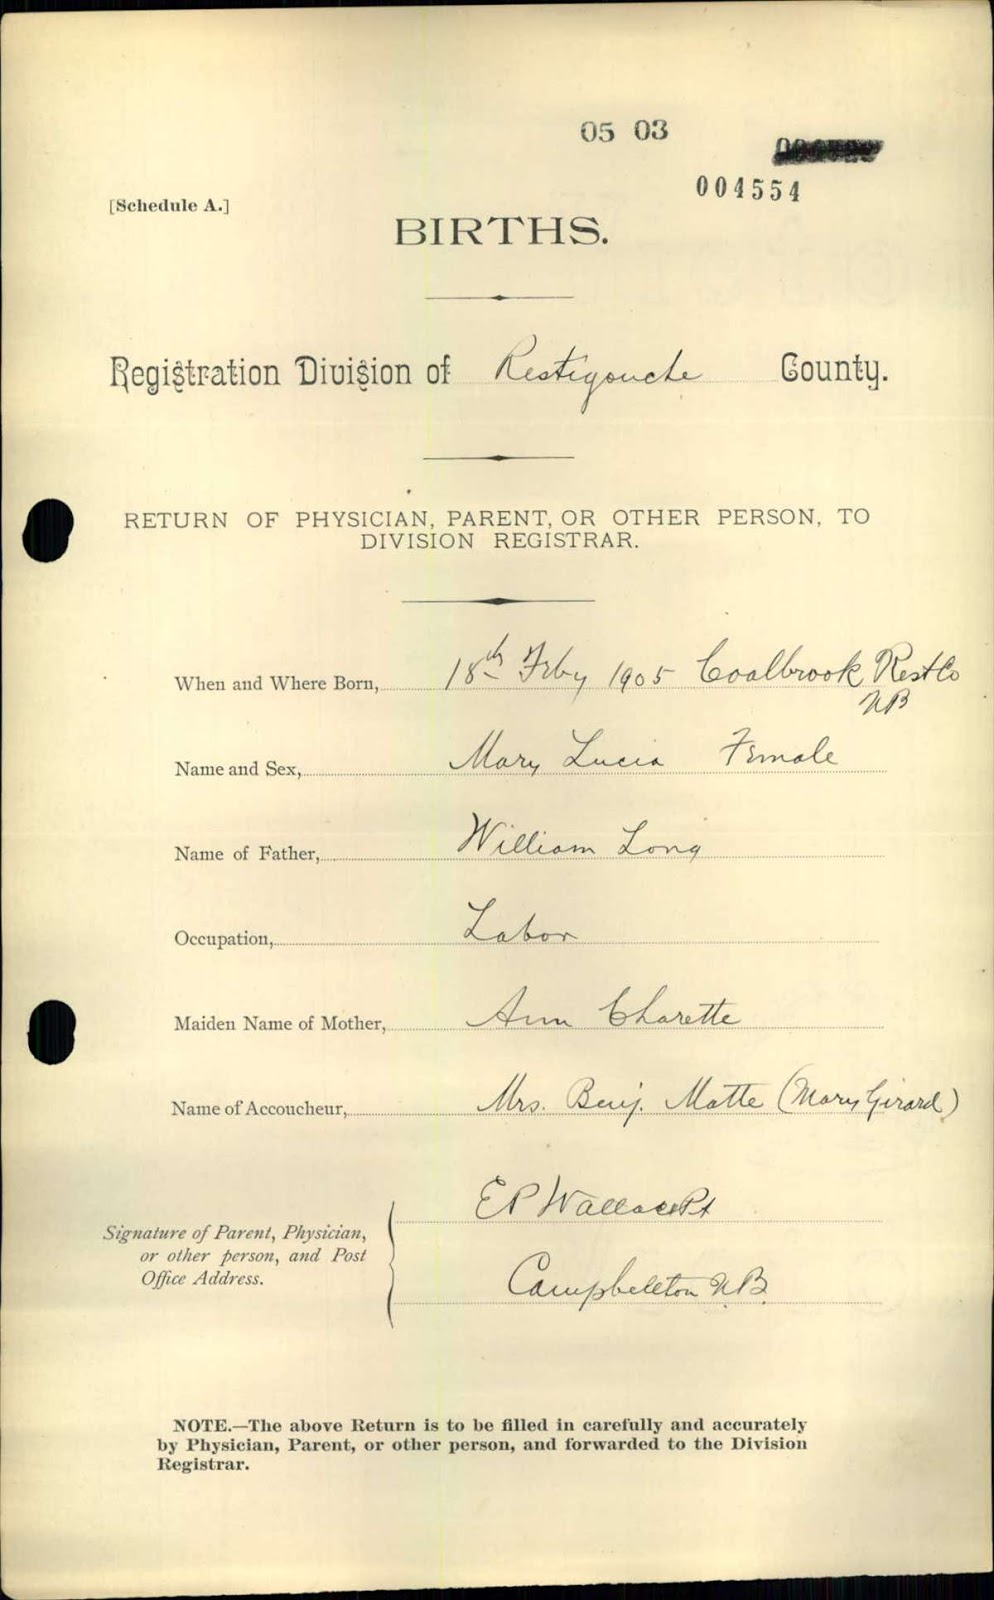 05 03
004554
[Schedule A.]
BIRTHS.
Registration Division of Restigouche County.
RETURN OF PHYSICIAN, PARENT, OR OTHER PERSON, TO
DIVISION REGISTRAR.
When and Where Born, 18th Feby 1905 Coalbrook Rest Co
NB
Name and Sex, Mary Lucia Female
Name of Father, William Long
Occupation, Labor
Maiden Name of Mother, Ann Charette
Name of Accoucheur, Mrs. Benj. Matte (Mary Girard)
E P Wallace
Signature of Parent, Physician,
or other person, and Post
Office Address.
Campbellton N.B.
NOTE.—The above Return is to be filled in carefully and accurately
by Physician, Parent, or other person, and forwarded to the Division
Registrar.